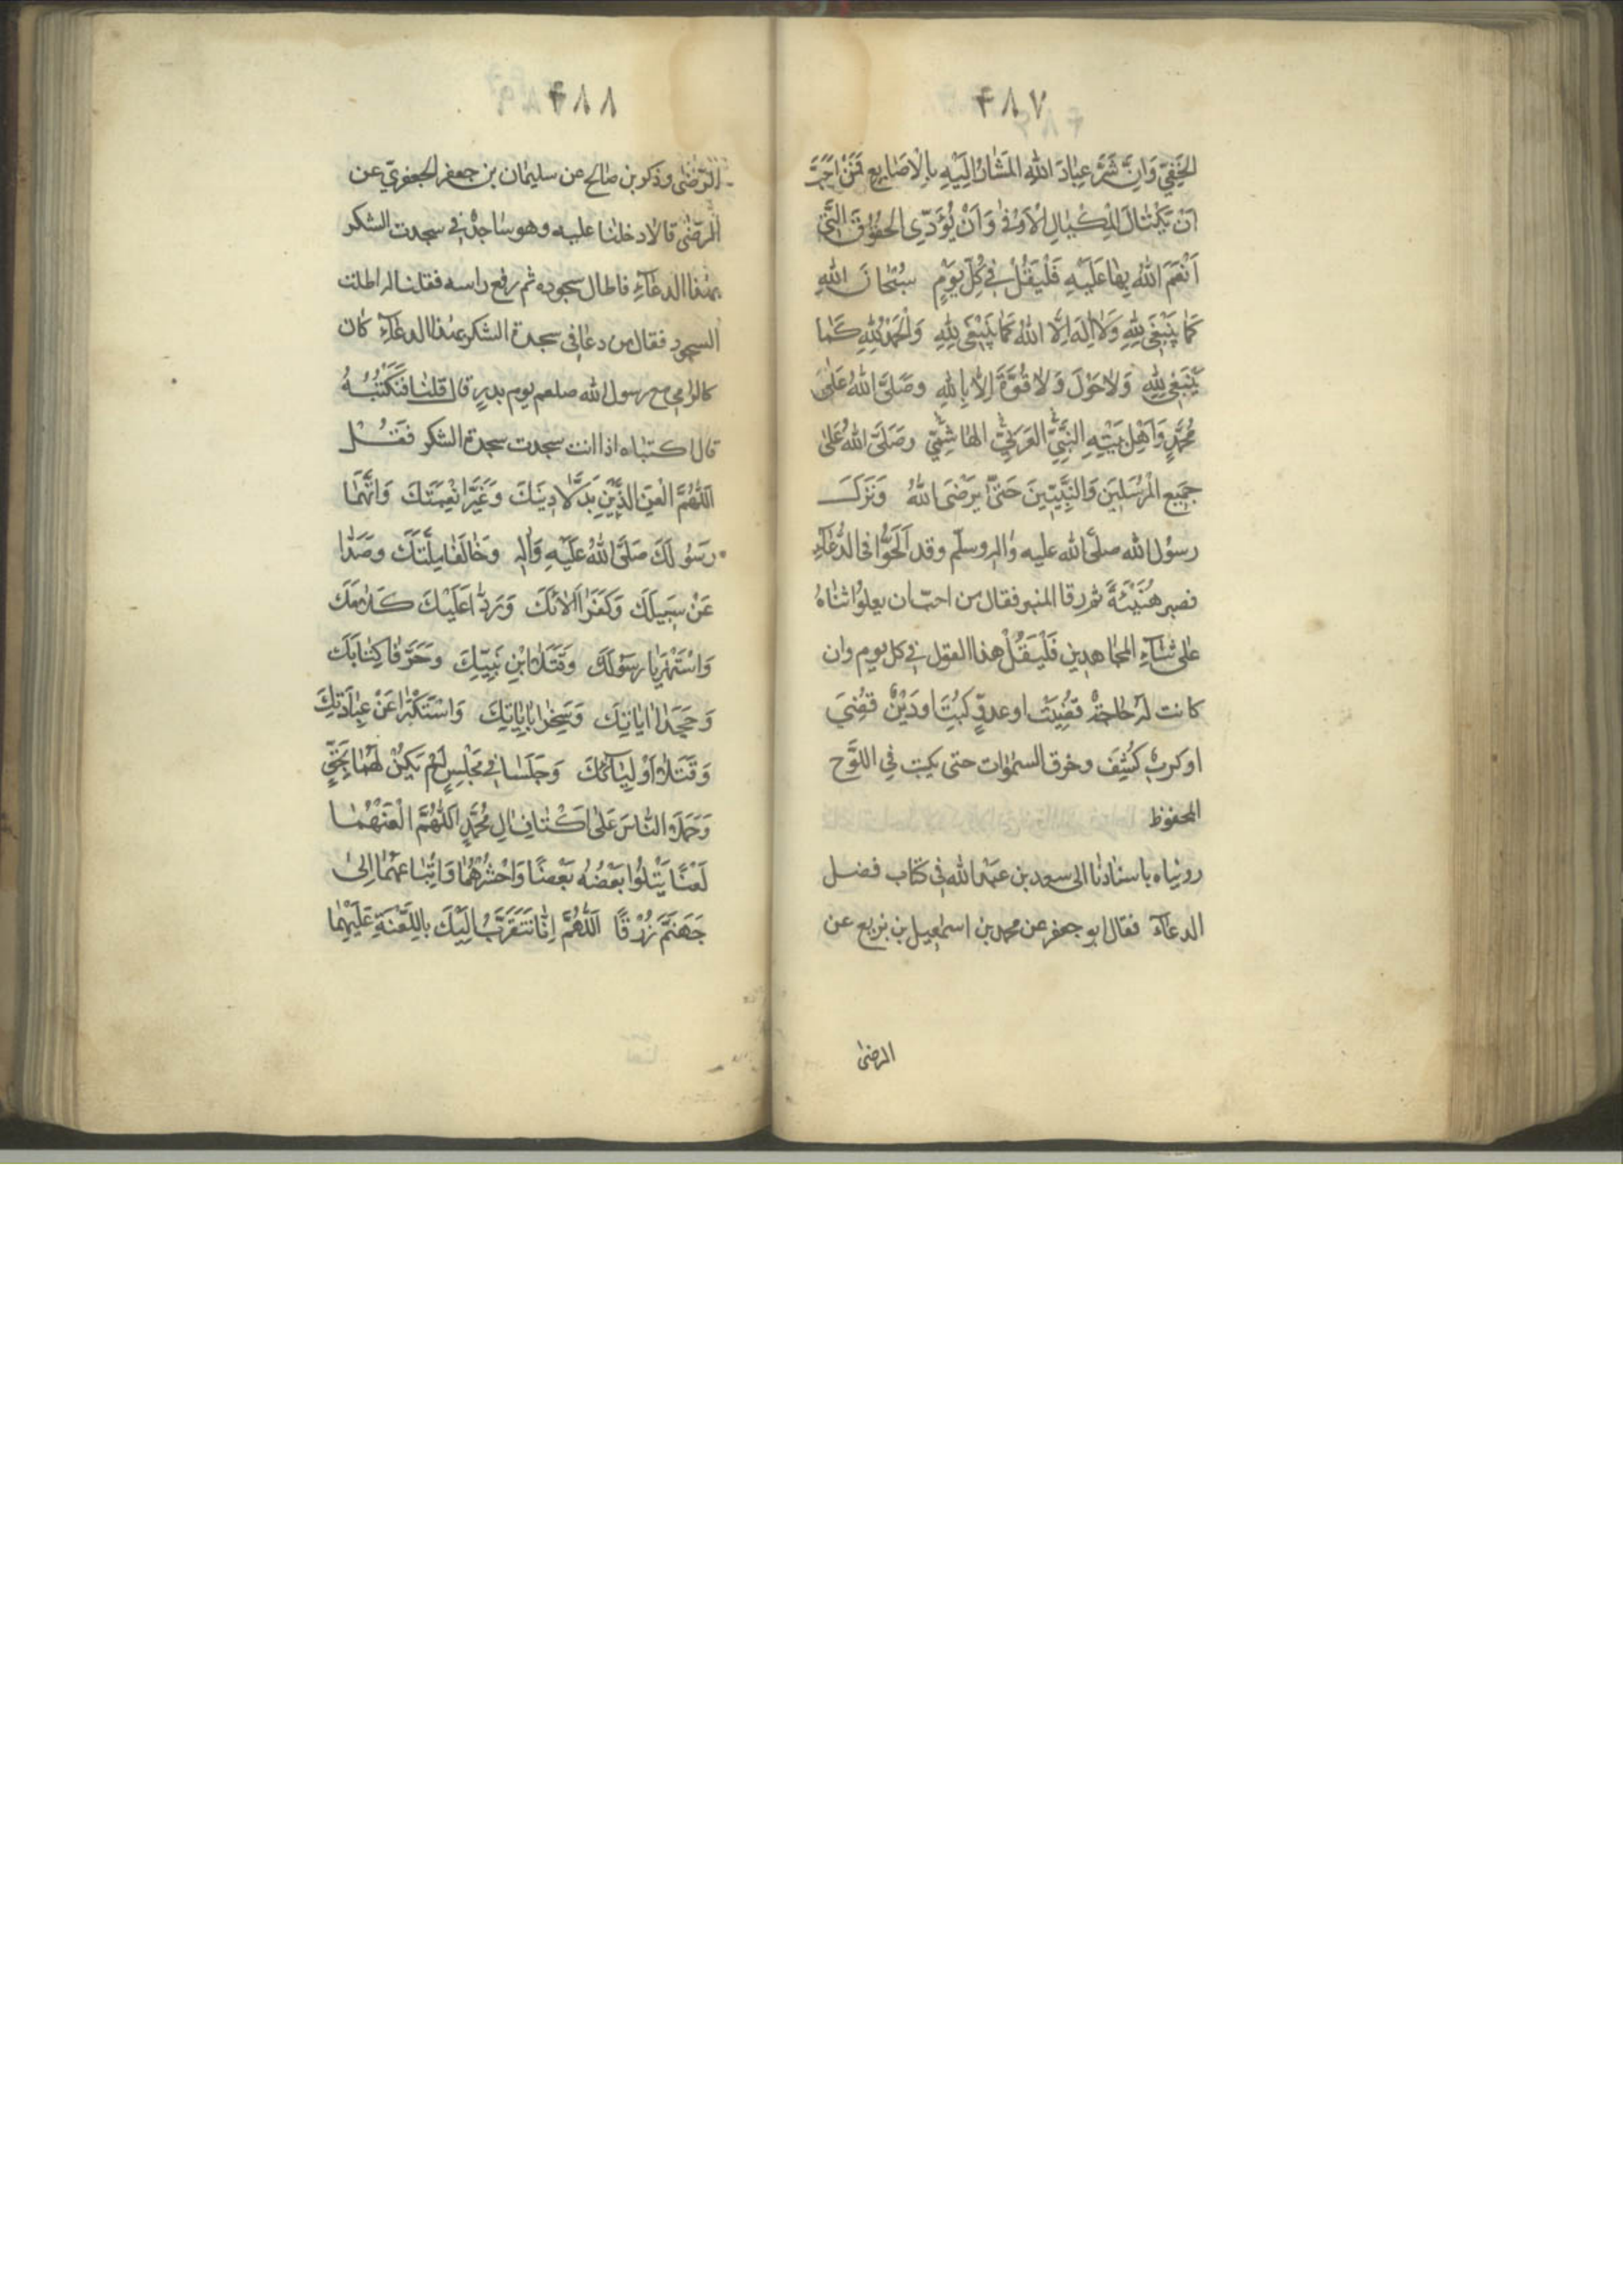 ۴۸۷
الخَفِيّ وَاِنَّ شَرَّ عِبَادَ اللهِ المُشَارُ اِلَيْهِ بِالْاَصَابِعِ فَمَنْ اَحَبَّ
اَنْ يَكْتَالَ بِالْمِكْيَالِ الْاَوْفٰى وَاَنْ يُؤَدِّى الحُقُوقَ الَّتِى
اَنْعَمَ اللهُ بِهَا عَلَيْهِ فَلْيَقُلْ فِى كُلِّ يَوْمٍ سُبْحَانَ اللهِ
كَمَا يَنْبَغِى لِلّهِ وَلَا اِلهَ اِلَّا اللهُ كَمَا يَنْبَغِى لِلّهِ وَالْحَمْدُ لِلّهِ كَمَا
يَنْبَغِى لِلّهِ وَلَا حَوْلَ وَلَا قُوَّةَ اِلَّا بِاللهِ وَصَلَّى اللهُ عَلٰى
مُحَمَّدٍ وَاَهْلِ بَيْتِهِ النَّبِيِّ العَرَبِيِّ الهَاشِمِيِّ وصَلَّى اللهُ عَلٰى
جَمِيعِ المُرْسَلِينَ وَالنَّبِيّينَ حَتّى يَرْضَى اللهُ وَنَزَلَ
رسوُل الله صلَّى الله عليه واله وسلّم وقد اَلَحُّوا فى الدُّعَآءِ
فصبر هُنَيْئَةً ثم رقا المنبر فقال من احبّ ان يعلوُا ثناهُ
على ثنآءِ المجاهدين فَلْيَقُلْ هذا القول فى كل يوم وان
كانت له حاجةٌ قضُِيَت او عدوٍّ كُبِتَ اودَيْنٌ قضُِيَ
او كربٌ كُشِفَ وخرق السموات حتى يكتب فى اللَّوْح
المحفوظ
روىناه باسنادنا الى سعد بن عبد الله فى كتاب فضل
الدعآء فقال ابو جعفر عن محمد بن اسمعيل بن بزيع عن
الرضى
۴۸۸
الرّضى وذكو بن صالح عن سليمان بن جعفر الجعفريّ عن
الرضى قالا دخلنا عليه وهو ساجدٌ فى سجدت الشكر
بهذا الدعآءِ فاطال سجوده ثم رفع راسه فقلنا له اطلت
السجود فقال من دعا فى سجدة الشكر بهذا الدعآءِ كان
كالرامى مع رسول الله صلعم يوم بدرٍ قال قلنا فنَكتُبُهُ
قال اكتباه اذا انت سجدت سجدة الشكر فَقُل
اَللّهُمَّ الْعَنِ الَّذَيْنِ بَدَّلَا دِينَكَ وَغَيَّرَا نِعْمَتَكَ وَاتَّهَمَا
رَسُولَكَ صَلَّى اللهُ عَلَيْهِ وَاٰلِهِ وَخَالَفَا مِلَّتَكَ وصَدَّا
عَنْ سَبِيلِكَ وَكَفَرَا اٰلَائَكَ وَرَدَّا عَلَيْكَ كَلَامَكَ
وَاسْتَهْزَيَا رسَوُلكَ وقَتَلَا ابْنِ نَبِيِّكَ وحَرَّفَا كِتَابَكَ
وَجَحَدَا اٰيَاتِكَ وَسَخِرَا بِاٰيَاتِكَ وَاسْتَكْبَرَا عَنْ عِبَادَتِكَ
وَقَتَلَا اَوْلِيَآئَكَ وَجَلَسَا فِى مَجْلِسٍ لَمْ يَكُنْ لَهُمَا بِحَقٍّ
وَحَمَلَا النَّاسَ عَلٰى اَكْتَافِ اٰلِ مُحَمَّدٍ اَللّهُمَّ الْعَنْهُمَا
لَعْنًا يَتْلُوا بَعْضُهُ بَعْضًا وَاحْشُرْهُمَا وَاَتْبَاعَهُمَا اِلىٰ
جَهَنَّمَ زُرْقًا اَللّهُمَّ اِنَّا نَتَقَرَّبُ اِلَيْكَ بِاللَّعْنَةِ عَلَيْهِمَا